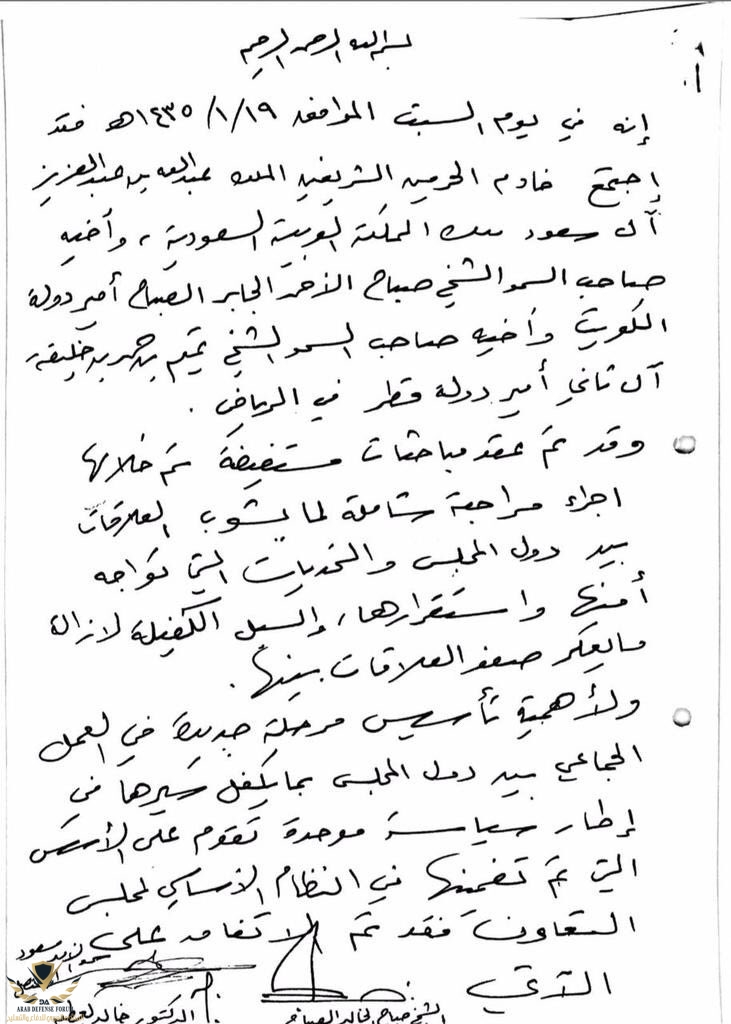 بسم الله الرحمن الرحيم
أ.
إنه في يوم السبت الموافق ١٤٣٥/١/١٩هـ فقد
إجتمع خادم الحرمين الشريفين الملك عبدالله بن عبدالعزيز
آل سعود ملك المملكة العربية السعودية، وأخيه
صاحب السمو الشيخ صباح الأحمد الجابر الصباح أمير دولة
الكويت وأخيه صاحب السمو الشيخ تميم بن حمد بن خليفة
آل ثاني أمير دولة قطر في الرياض.
وقد تم عقد مباحثات مستفيضة تم خلالها
اجراء مراجعة شاملة لما يشوب العلاقات
بين دول المجلس والتحديات التي تواجه
أمنها واستقرارها، والسبل الكفيلة لازالة
مايعكر صفو العلاقات بينها.
ولأهمية تأسيس مرحلة جديدة في العمل
الجماعي بين دول المجلس بما يكفل سيرها في
إطار سياسة موحدة تقوم على الأسس
التي تم تضمنها في النظام الأساسي لمجلس
التعاون فقد تم الاتفاق على
الآتي
سعود
الفيصل
الشيخ صباح الخالد الصباح
الدكتور خالد العطية
ARAB DEFENSE FORUM